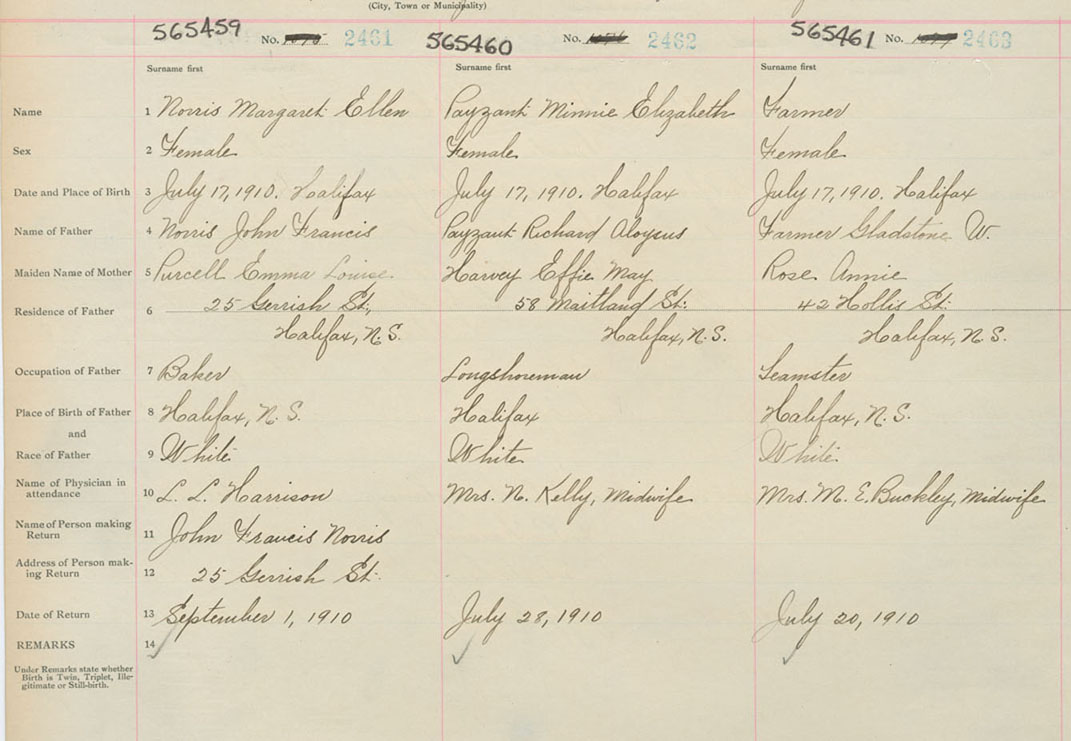 (City, Town or Municipality)
565459 No. 2461 565460 No. 2462 565461 No. 2463
Surname first Surname first Surname first
Name 1 Norris Margaret Ellen Payzant Minnie Elizabeth Farmer
Sex 2 Female Female Female
Date and Place of Birth 3 July 17, 1910. Halifax July 17, 1910. Halifax July 17, 1910. Halifax
Name of Father 4 Norris John Francis Payzant Richard Aloysus Farmer Gladstone W.
Maiden Name of Mother 5 Purcell Emma Louise Harvey Effie May Rose Annie
Residence of Father 6 25 Gerrish St., 58 Maitland St. 42 Hollis St.
Halifax, N.S. Halifax, N.S. Halifax, N.S.
Occupation of Father 7 Baker Longshoreman Teamster
Place of Birth of Father 8 Halifax, N.S. Halifax Halifax, N.S.
and
Race of Father 9 White White White
Name of Physician in attendance 10 L. L. Harrison Mrs. N. Kelly, Midwife Mrs. M. E. Buckley, Midwife
Name of Person making Return 11 John Francis Norris
Address of Person mak-
ing Return 12 25 Gerrish St.
Date of Return 13 September 1, 1910 July 28, 1910 July 20, 1910
REMARKS 14
Under Remarks state whether
Birth is Twin, Triplet, Ille-
gitimate or Still-birth.